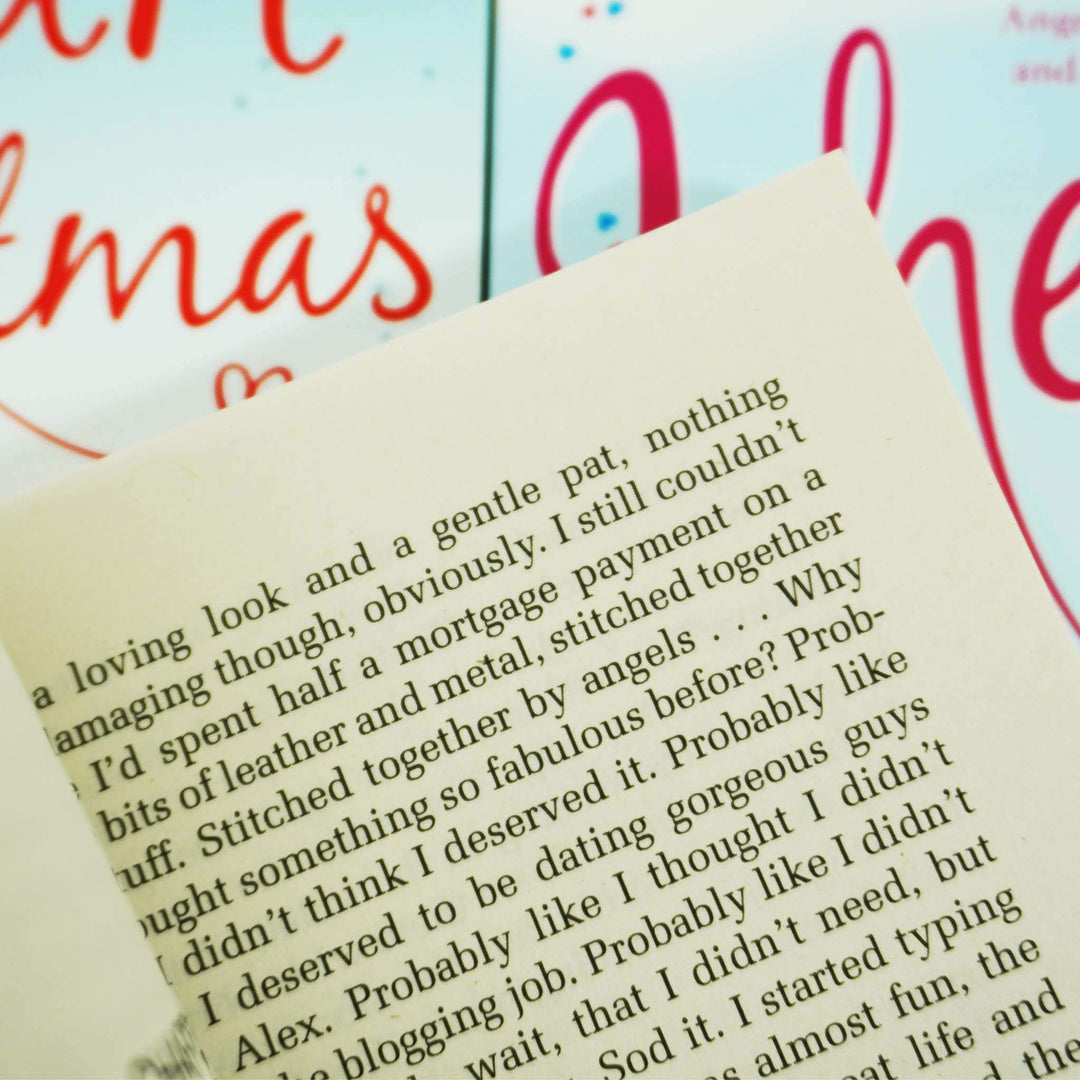 tmas
Ange
and
he
a loving look and a gentle pat, nothing
amaging though, obviously. I still couldn't
I'd spent half a mortgage payment on a
bits of leather and metal, stitched together
uff. Stitched together by angels . . . Why
ought something so fabulous before? Prob-
didn't think I deserved it. Probably like
I deserved to be dating gorgeous guys
Alex. Probably like I thought I didn't
blogging job. Probably like I didn't
wait, that I didn't need, but
Sod it. I started typing
almost fun, the
life and
the